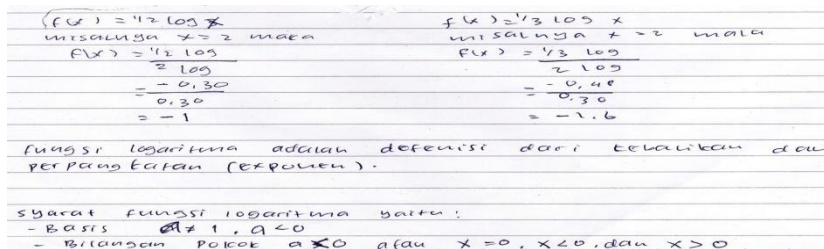 f(x) = 1/2 log x
misalnya x = 2 maka
f(x) = 1/2 log
2 log
= - 0,30
0,30
= -1
f(x) = 1/3 log x
misalnya x = 2 maka
f(x) = 1/3 log
2 log
= - 0,48
0,30
= -1.6
fungsi logaritma adalah defenisi dari kebalikan dau
perpangkatan (exponen).
syarat fungsi logaritma yaitu :
- Basis a ≠ 1, a < 0
- Bilangan Pokok a < 0 atau x = 0, x < 0, dan x > 0